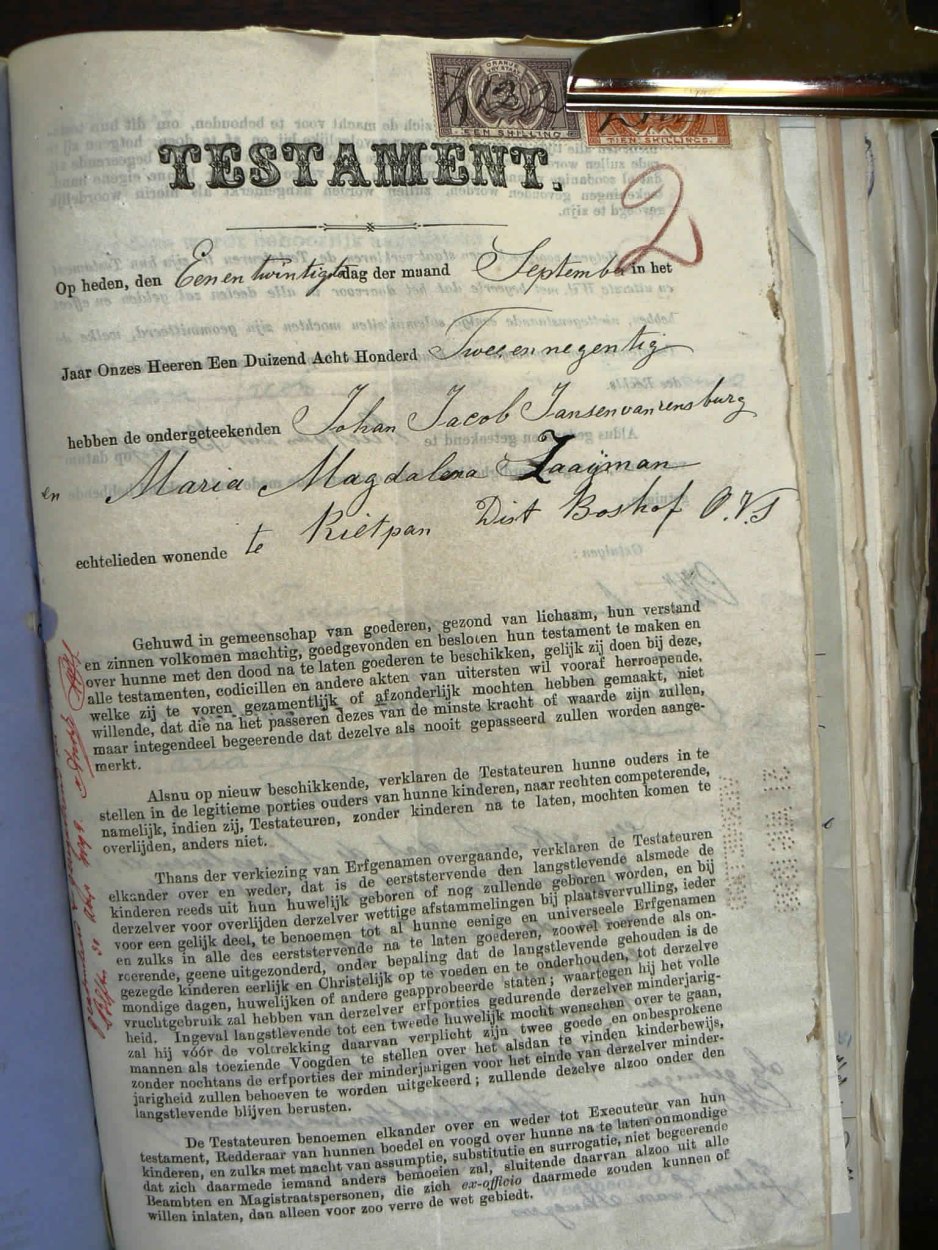 ORANJE
VRYSTAAT
EEN SHILLING
TIEN SHILLINGS.
TESTAMENT.
2
Op heden, den Eenentwintigste dag der maand September in het
Jaar Onzes Heeren Een Duizend Acht Honderd Twee en negentig
hebben de ondergeteekenden Johan Jacob Jansenvanrensburg
en Maria Magdalena Zaaÿman
echtelieden wonende te Rietpan Dist Boshof O.V.S
Gehuwd in gemeenschap van goederen, gezond van lichaam, hun verstand
en zinnen volkomen machtig, goedgevonden en besloten hun testament te maken en
over hunne met den dood na te laten goederen te beschikken, gelijk zij doen bij deze,
alle testamenten, codicillen en andere akten van uitersten wil vooraf herroepende,
welke zij te voren gezamentlijk of afzonderlijk mochten hebben gemaakt, niet
willende, dat die na het passeren dezes van de minste kracht of waarde zijn zullen,
maar integendeel begeerende dat dezelve als nooit gepasseerd zullen worden aange-
merkt.
Alsnu op nieuw beschikkende, verklaren de Testateuren hunne ouders in te
stellen in de legitieme porties ouders van hunne kinderen, naar rechten competerende,
namelijk, indien zij, Testateuren, zonder kinderen na te laten, mochten komen te
overlijden, anders niet.
Thans der verkiezing van Erfgenamen overgaande, verklaren de Testateuren
elkander over en weder, dat is de eerststervende den langstlevende alsmede de
kinderen reeds uit hun huwelijk geboren of nog zullende geboren worden, en bij
derzelver voor overlijden derzelver wettige afstammelingen bij plaatsvervulling, ieder
voor een gelijk deel, te benoemen tot al hunne eenige en universeele Erfgenamen
en zulks in alle des eerststervende na te laten goederen, zoowel roerende als on-
roerende, geene uitgezonderd, onder bepaling dat de langstlevende gehouden is de
gezegde kinderen eerlijk en Christelijk op te voeden en te onderhouden, tot derzelve
mondige dagen, huwelijken of andere geapprobeerde staten; waartegen hij het volle
vruchtgebruik zal hebben van derzelver erfporties gedurende derzelver minderjarig-
heid. Ingeval langstlevende tot een tweede huwelijk mocht wenschen over te gaan,
zal hij vóór de voltrekking daarvan verplicht zijn twee goede en onbesprokene
mannen als toeziende Voogden te stellen over het alsdan te vinden kinderbewijs,
zonder nochtans de erfporties der minderjarigen voor het einde van derzelver minder-
jarigheid zullen behoeven te worden uitgekeerd; zullende dezelve alzoo onder den
langstlevende blijven berusten.
De Testateuren benoemen elkander over en weder tot Executeur van hun
testament, Redderaar van hunnen boedel en voogd over hunne na te laten onmondige
kinderen, en zulks met macht van assumptie, substitutie en surrogatie, niet begeerende
dat zich daarmede iemand anders bemoeien zal, sluitende daarvan alzoo uit alle
Beambten en Magistraatspersonen, die zich ex-officio daarmede zouden kunnen of
willen inlaten, dan alleen voor zoo verre de wet gebiedt.